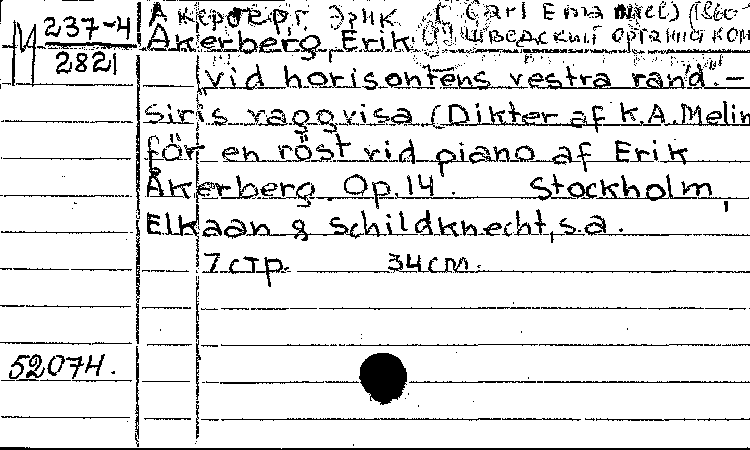 Акерберг, Эрик [Carl Emanuel) (1860-
шведский органист ком
М 237-4
2821
Åkerberg, Erik
vid horisontens vestra rand. –
Siris vaggvisa (Dikter af K.A. Melin
för en röst vid piano af Erik
Åkerberg. Op. 14. Stockholm,
Elkaan & Schildknecht, s.a.
7 стр. 34 см.
52074.